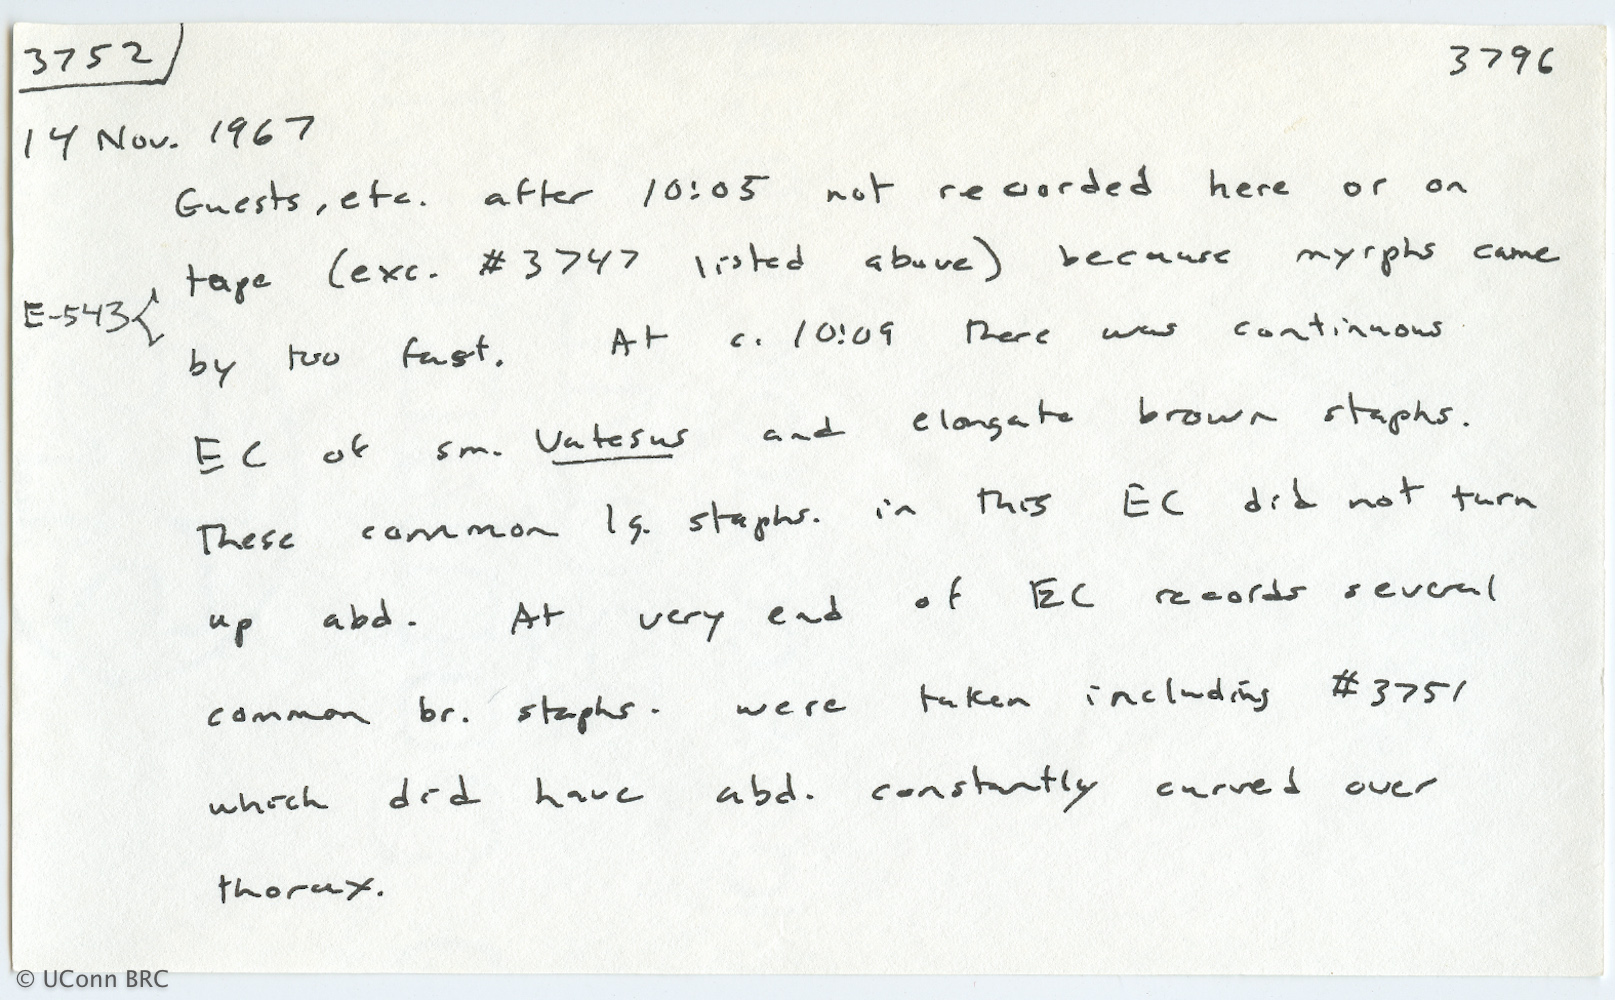 3752 3796
14 Nov. 1967
Guests, etc. after 10:05 not recorded here or on
tape (exc. #3747 listed above) because myrphs came
E-543
by too fast. At c. 10:09 there was continuous
EC of sm. Vatesus and elongate brown staphs.
These common lg. staphs. in this EC did not turn
up abd. At very end of EC records several
common br. staphs. were taken including #3751
which did have abd. constantly curved over
thorax.
© UConn BRC